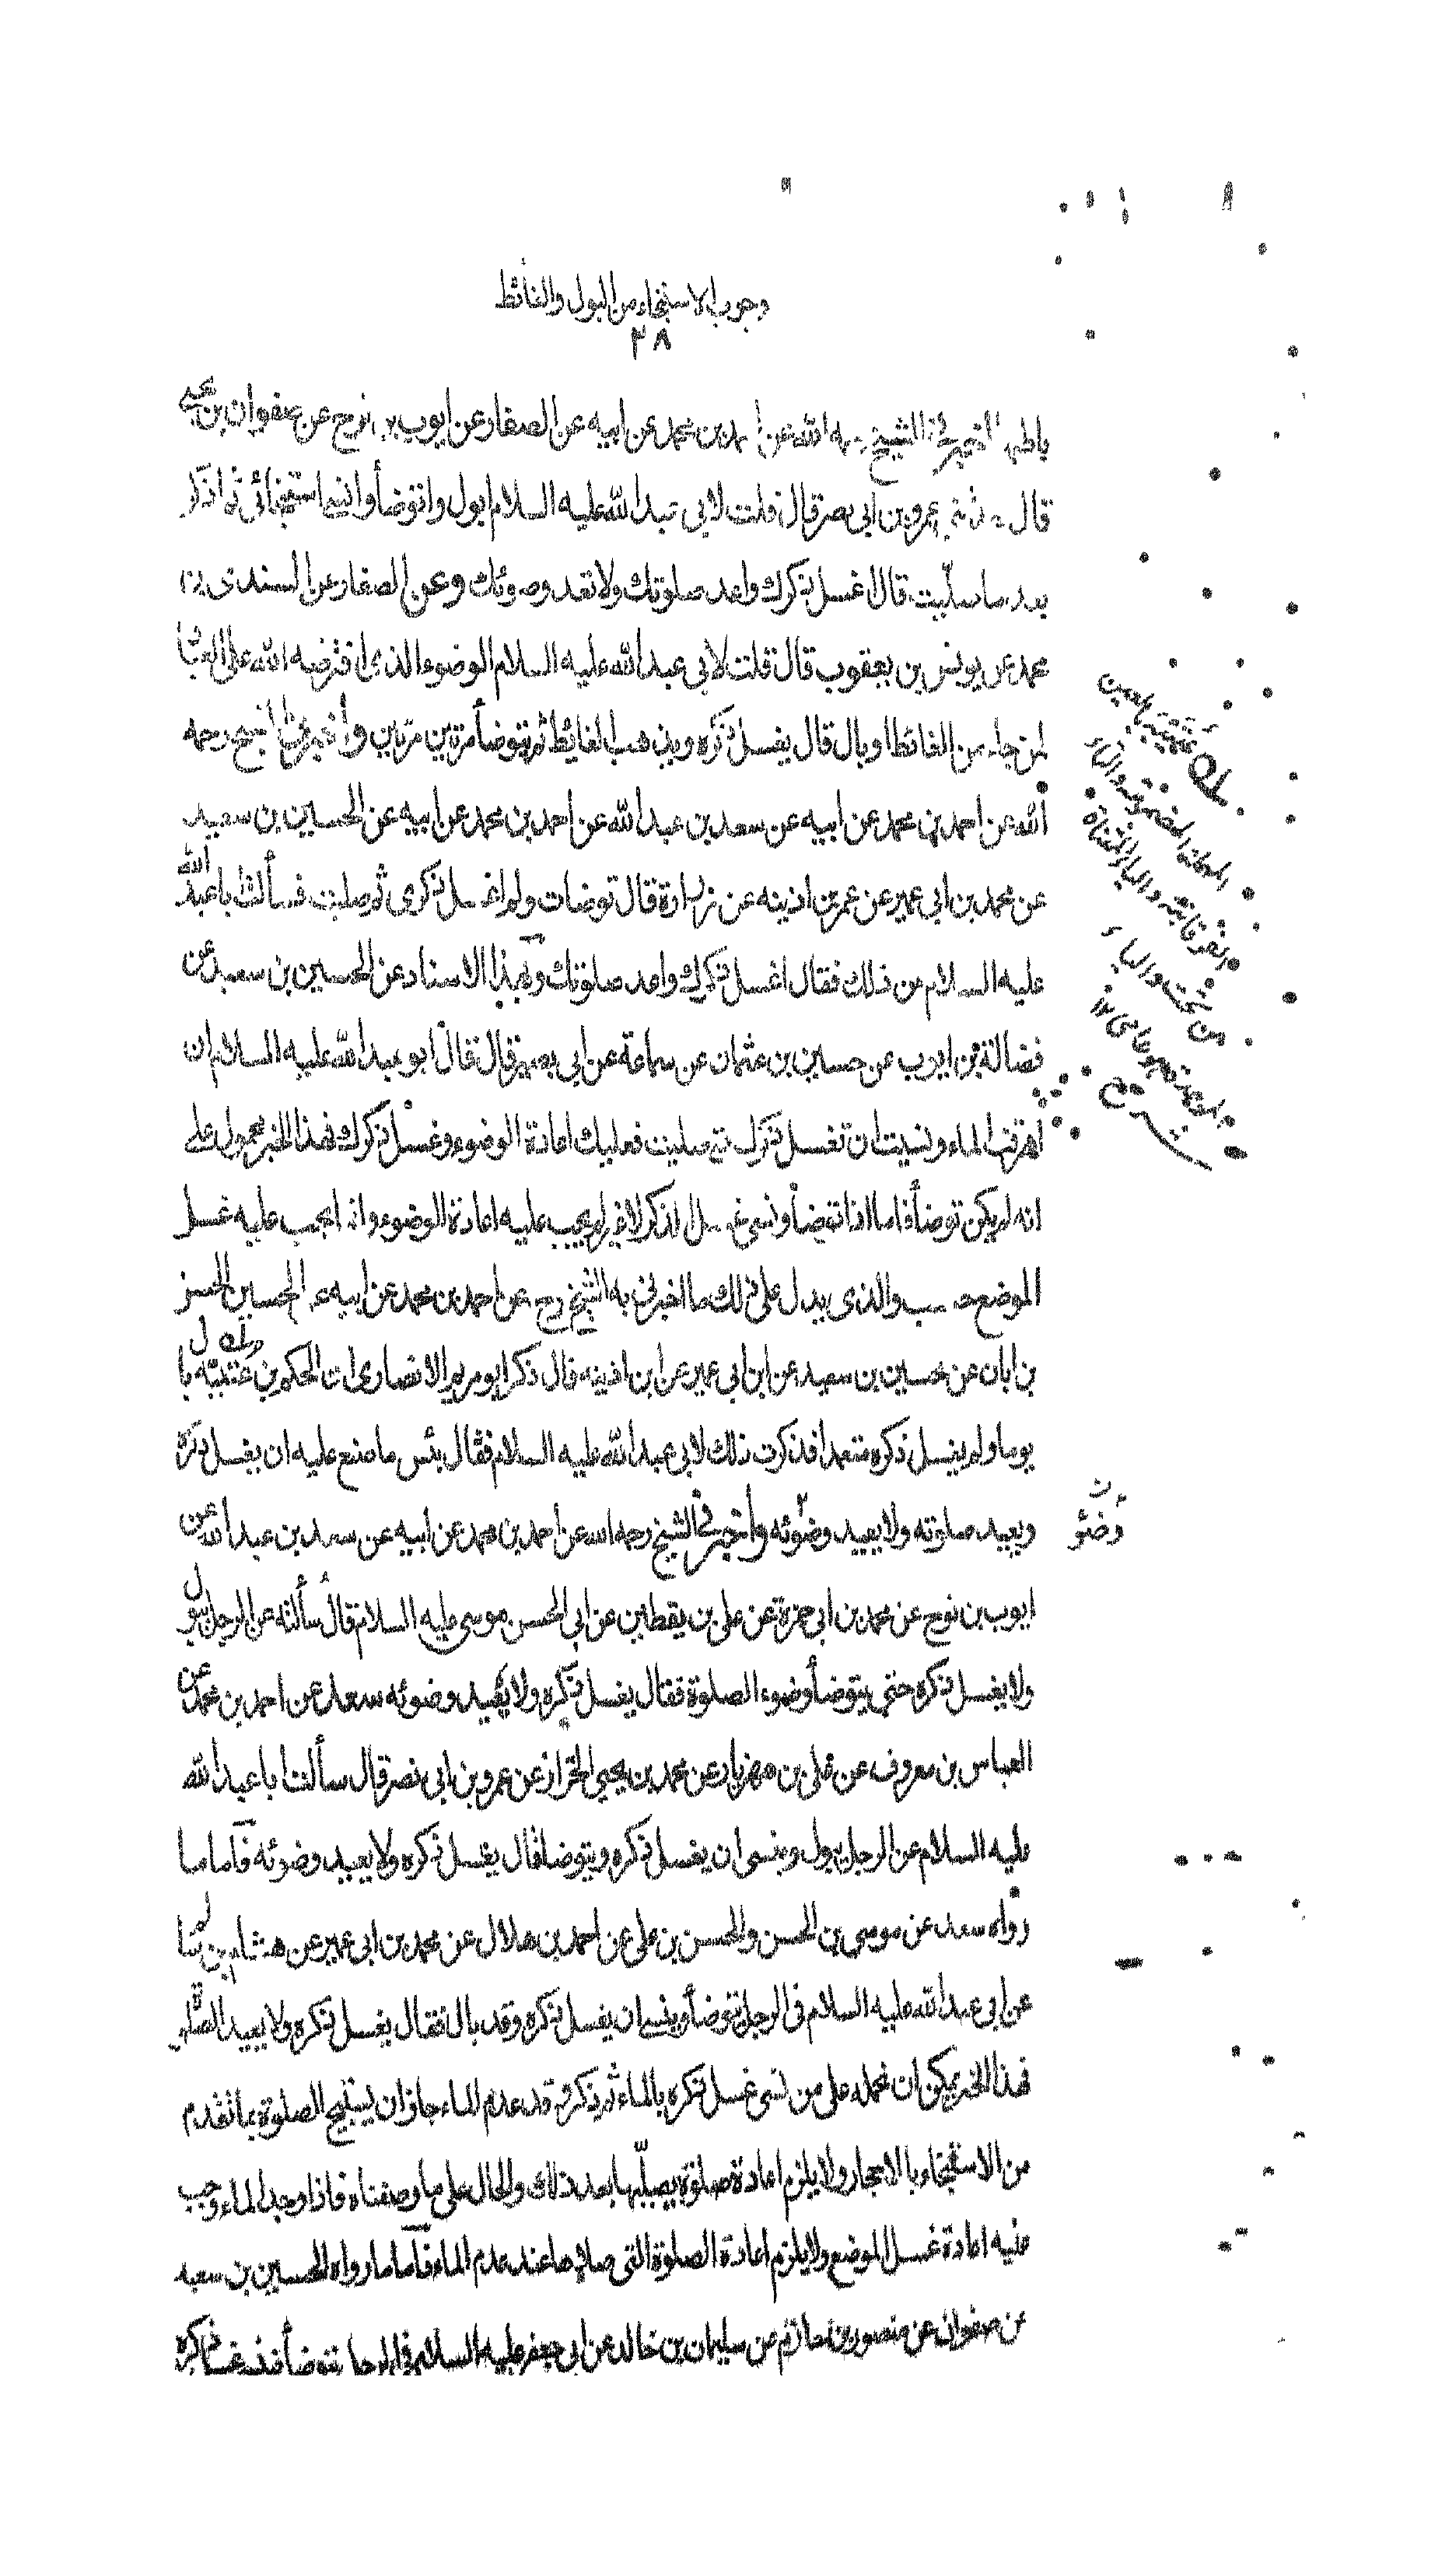 وجوب الاستنجاء من البول والغائط
٢٨
الشيخ الله عن احمد بن محمد عن ابيه عن الصفار عن ايوب بن نوح عن صفوان بن يحيى
قال عمرو بن ابى نصر قال قلت لابى عبد الله عليه السلام ابول واتوضأ وانسى استنجائى ثم اذكر
بعد ما صليت قال اغسل ذكرك واعد صلوتك ولا تعد وضوئك وعن الصفار عن السندى بن
محمد عن يونس بن يعقوب قال قلت لابى عبد الله عليه السلام الوضوء الذى افترضه الله على العباد
لمن جاء من الغائط او بال قال يغسل ذكره ويذهب الغائط ثم يتوضأ مرتين مرتين وأخبرنى الشيخ رحمه
الله عن احمد بن محمد عن ابيه عن سعد بن عبد الله عن احمد بن محمد عن ابيه عن الحسين بن سعيد
عن محمد بن ابى عمير عن عمر بن اذينه عن زرارة قال توضات ولم اغسل ذكرى ثم صليت فسألت ابا عبد الله
عليه السلام من ذلك فقال اغسل ذكرك واعد صلوتك وبهذا الاسناد عن الحسين بن سعيد عن
فضالة بن ايوب عن حسين بن عثمان عن سماعة عن ابى بصير قال قال ابو عبد الله عليه السلام ان
اهرقت الماء ونسيت ان تغسل ذكرك حتى صليت فعليك اعادة الوضوء وغسل ذكرك فهذا الخبر محمول على
انه لم يكن توضأ فاما اذا توضأ ونسى غسل الذكر لا غير لم يجب عليه اعادة الوضوء وانما يجب عليه غسل
الموضع حسب والذى يدل على ذلك ما اخبرنى به الشيخ رح عن احمد بن محمد عن ابيه عن الحسين بن الحسن
بن ابان عن حسين بن سعيد عن ابن ابى عمير عن ابن اذينه قال ذكر ابو مريم الانصارى ان الحكم بن عتيبه بال
يوما ولم يغسل ذكره متعمدا فذكرت ذلك لابى عبد الله عليه السلام فقال بئس ما صنع عليه ان يغسل ذكره
ويعيد صلوته ولا يعيد وضوئه وأخبرنى الشيخ رحمه الله عن احمد بن محمد عن ابيه عن سعد بن عبد الله عن
ايوب بن نوح عن محمد بن ابى حمزة عن على بن يقطين عن ابى الحسن موسى عليه السلام قال سألته عن الرجل يبول
ولا يغسل ذكره حتى يتوضأ وضوء الصلوة فقال يغسل ذكره ولا يعيد وضوئه سعد عن احمد بن محمد عن
العباس بن معروف عن على بن مهزيار عن محمد بن يحيى الخزاز عن عمرو بن ابى نصر قال سألت ابا عبد الله
عليه السلام عن الرجل يبول وينسى ان يغسل ذكره ويتوضا قال يغسل ذكره ولا يعيد وضوئه فاما ما
رواه سعد عن موسى بن الحسن والحسن بن على عن احمد بن هلال عن محمد بن ابى عمير عن هشام بن سالم
عن ابى عبد الله عليه السلام فى الرجل يتوضأ وينسى ان يغسل ذكره وقد بال فقال يغسل ذكره ولا يعيد الصلوة
فهذا الخبر يمكن ان نحمله على من نسى غسل ذكره بالماء ثم ذكر وقد عدم الماء جاز ان يستبيح الصلوة بما تقدم
من الاستنجاء بالاحجار ولا يلزم اعادة صلوة يصليها بعد ذلك والحال على ما وصفناه فاذا وجد الماء وجب
عليه اعادة غسل الموضع ولا يلزم اعادة الصلوة التى صلاها عند عدم الماء فاما ما رواه الحسين بن سعيد
عن صفوان عن منصور بن حازم عن سليمان بن خالد عن ابى جعفر عليه السلام فى الرجل يتوضأ فينسى غسل ذكره
عتيبة بالعين
المهملة المضمومة والتاء
الفوقانية والياء المثناة
من تحت والباء